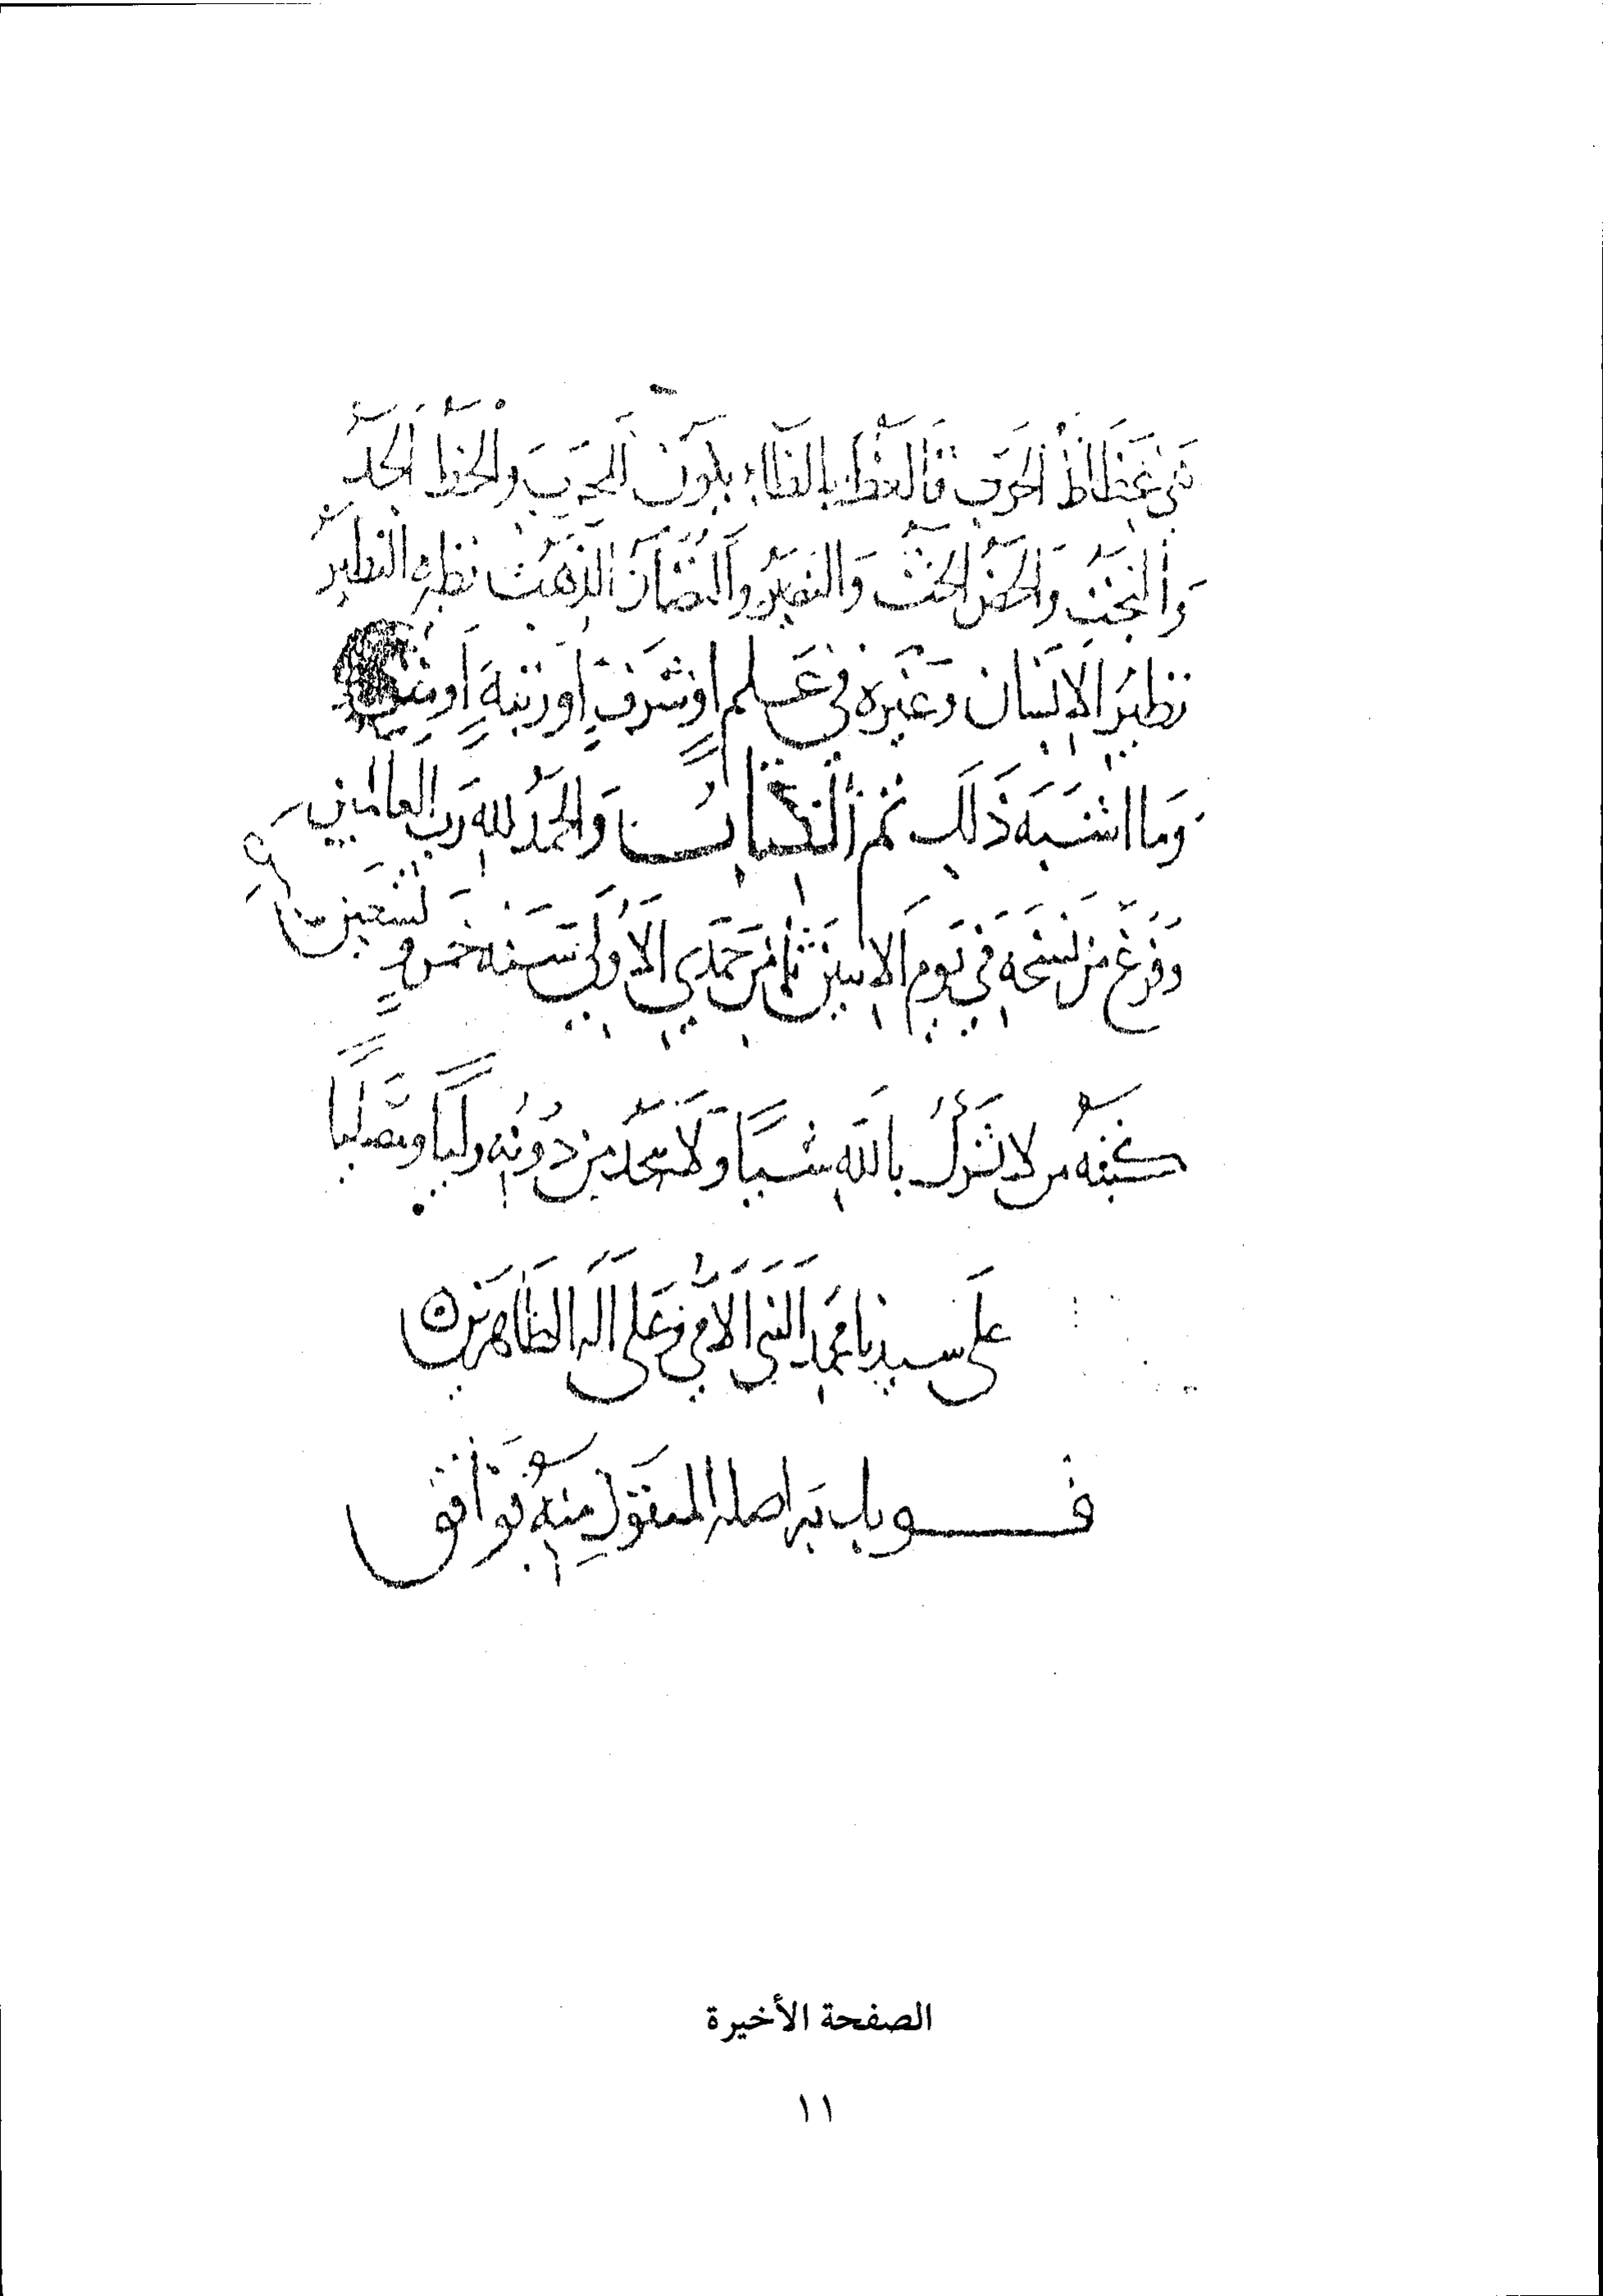 عظاظ الحرب فالعظ بالظاء يكون للحرب والحظ الجد
والبخت والحض الحث والنضير والنضار الذهب نظيره النظير
نظير الانسان وغيره في علم او شرف او رتبة او
وما اشبه ذلك تم الكتاب والحمد لله رب العالمين
وفرغ من نسخه في يوم الاثنين ثامن جمدي الاولى سنة خمس و تسعين
كتبه من لا يشرك بالله شيا ولا يتخذ من دونه وليا ومصليا
على سيدنا محمد النبي الامي وعلى اله الطاهرين
قوبل به اصله المنقول منه فوافق
الصفحة الأخيرة
١١